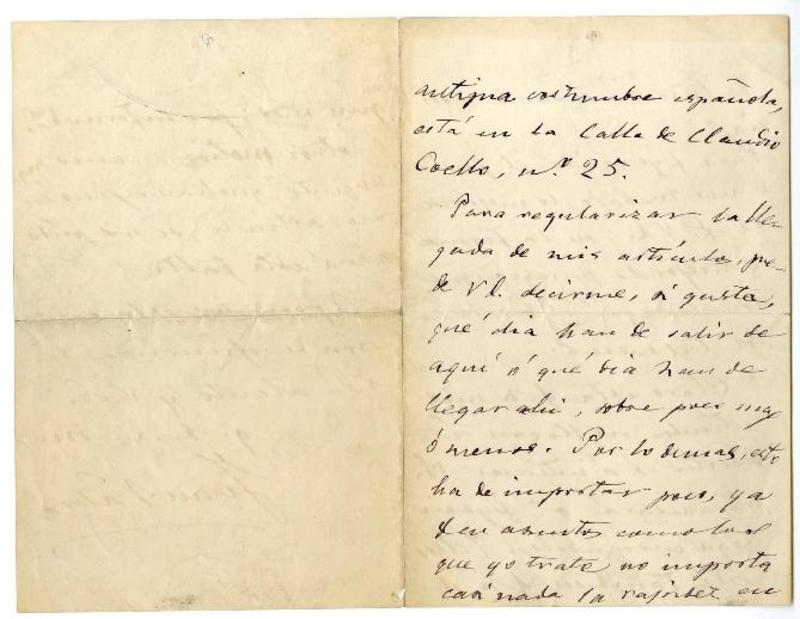 antigua costumbre española,
está en la Calle de Claudio
Coello, n.º 25.
Para regularizar la lle-
gada de mis artículos, pue-
de Vd. decirme, si gusta,
qué dia han de salir de
aquí ó qué dia han de
llegar ahi, sobre poco mas
ó menos. Por lo demas, esto
ha de importar poco, ya
q en asuntos como los
que yo trate no importa
casi nada la rapidez en